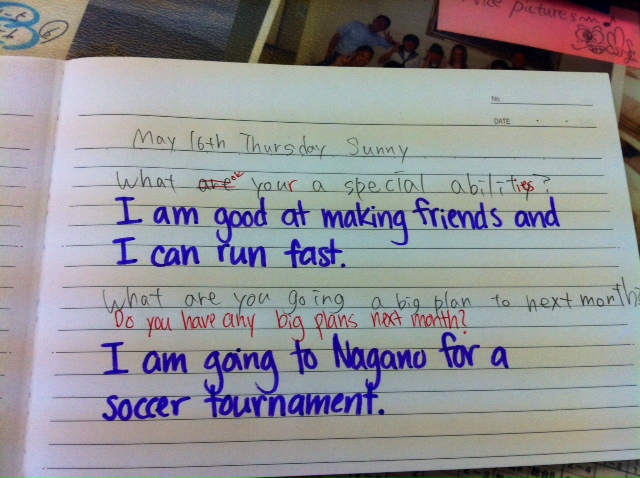 Nice pictures
No.
DATE
May 16th Thursday Sunny
What are your a special abilities?
I am good at making friends and
I can run fast.
What are you going a big plan to next month?
Do you have any big plans next month?
I am going to Nagano for a
soccer tournament.